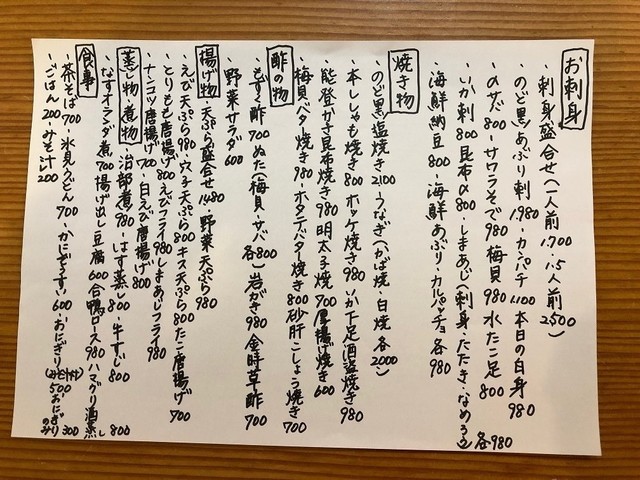 お刺身
・刺身盛合せ(一人前1,700・1.5人前2,500
・のど黒あぶり刺1,980・カンパチ1,100 本日の白身980
・〆サバ800・サワラそで980 梅貝980 水たこ足800
・いか刺800 昆布〆800・しまあじ(刺身・たたき・なめろう)各980
・海鮮納豆800・海鮮あぶり・カルパッチョ各980
焼き物
・のど黒塩焼き2,100・うなぎ(かば焼・白焼各2000)
・本ししゃも焼き800 ホッケ焼き980・いか下足酒盗焼き980
・能登かき昆布焼き980 明太子焼700 厚揚げ焼き600
・梅貝バター焼き980・ホタテバター焼き800 砂肝こしょう焼き700
酢の物
・もずく酢700 ぬた(梅貝・サバ各800)岩がき980 金時草酢700
・野菜サラダ600
揚げ物・天ぷら盛合せ1,480・野菜天ぷら980
・えび天ぷら980・穴子天ぷら800 キス天ぷら800 たこ唐揚げ700
・とりもも唐揚げ800 えびフライ980 しまあじフライ980
・ナンコツ唐揚げ700・白えび唐揚げ800
蒸し物・煮物 治部煮980・はす蒸し800・牛すじ800
・なすオランダ煮700 揚げ出し豆腐600 合鴨ロース980 ハマグリ酒蒸し800
食事
・茶そば700・氷見うどん700・かにぞうすい600・おにぎり(みそ汁付)500 おにぎりのみ300
・ごはん200・みそ汁200